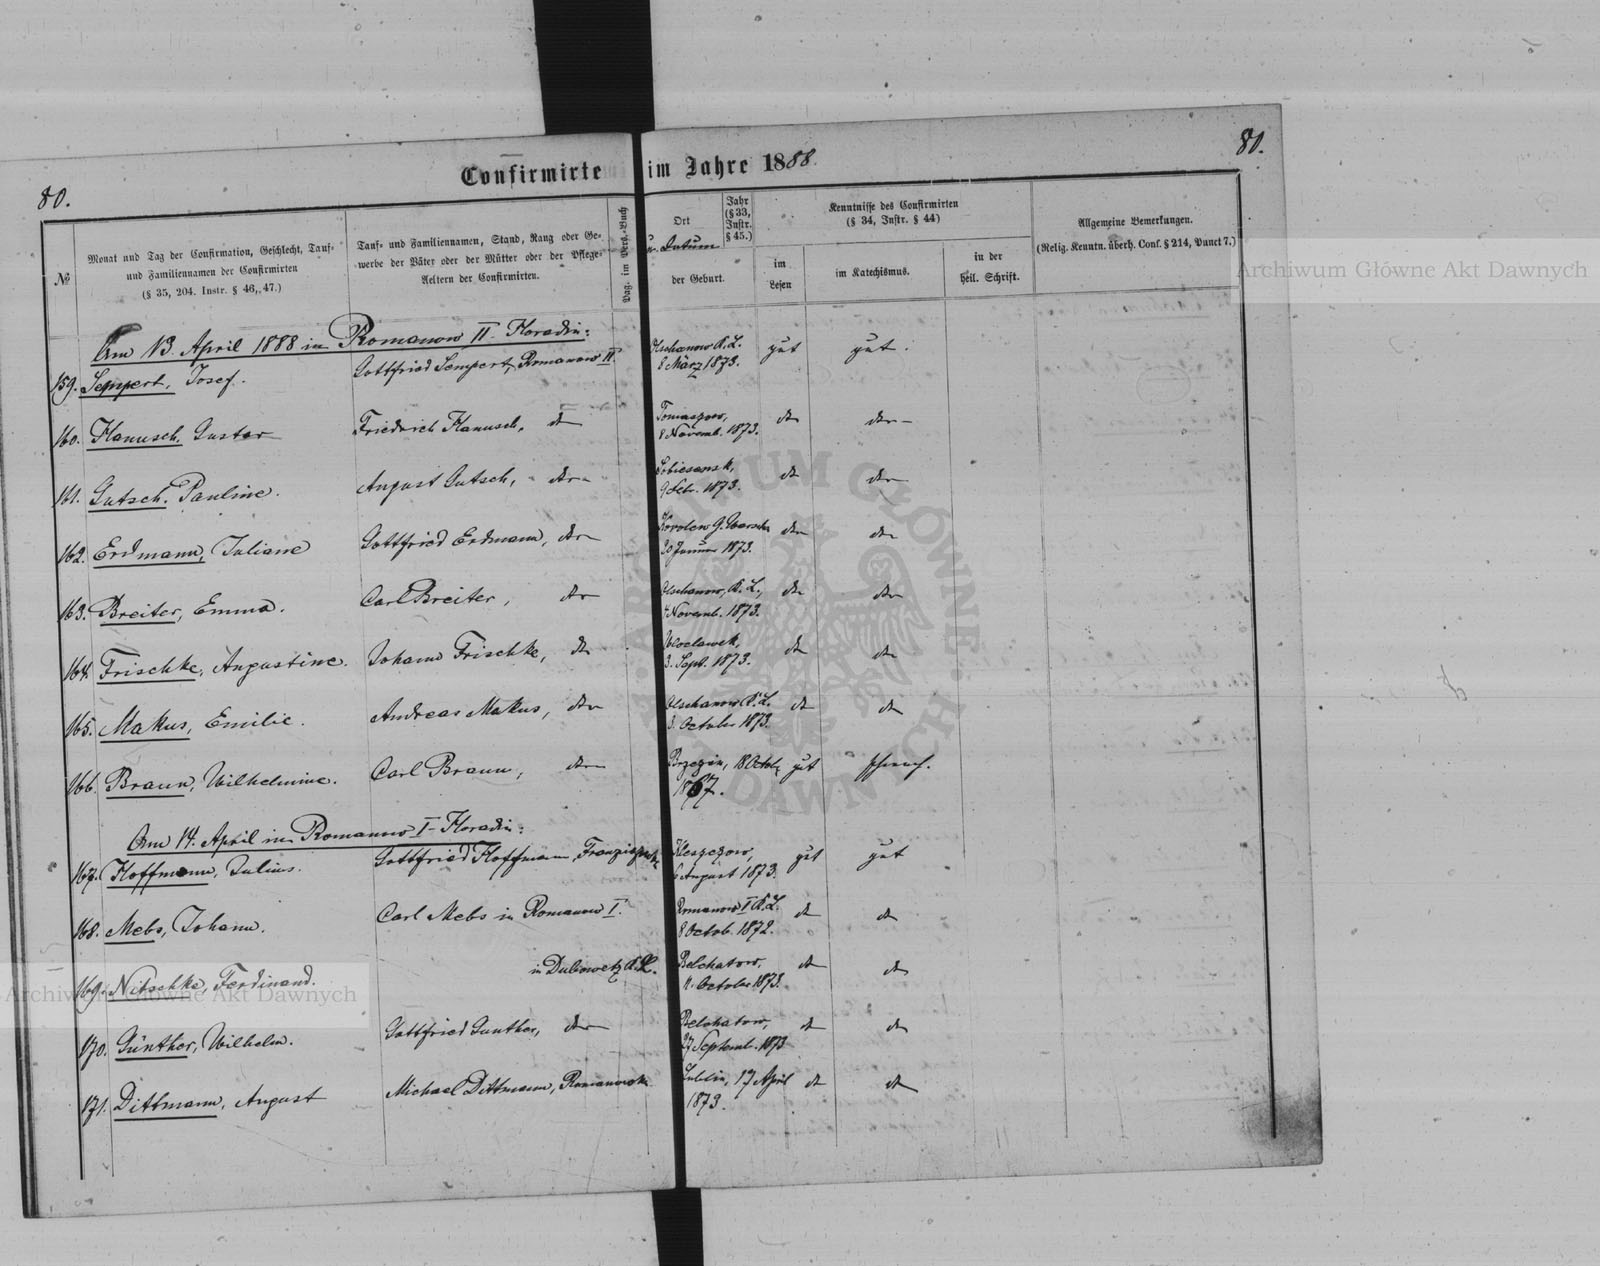 80.
80.
Confirmirte im Jahre 1888
№
Monat und Tag der Confirmation, Geschlecht, Tauf-
und Familiennamen der Confirmirten
(§ 35, 204. Instr. § 46, 47.)
Tauf- und Familiennamen, Stand, Rang oder Ge-
werbe der Väter oder der Mütter oder der Pflege-
Aeltern der Confirmirten.
Pag. im Pers.-Buch
Ort
u. Datum
der Geburt.
Jahr
(§ 33,
Instr.
§ 45.)
Kenntnisse des Confirmirten
(§ 34, Instr. § 44)
im
Lesen
im Katechismus.
in der
heil. Schrift.
Allgemeine Bemerkungen.
(Relig. Kenntn. überh. Conf. § 214, Punct 7.)
Am 13. April 1888 in Romanow II - Horadin:
159. Sempert, Josef. Gottfried Sempert, Romanow II. Olschanow K. L. gut gut.
6 März 1873.
160. Hanusch, Gustav Friedrich Hanusch, dto Tomaszow, dto dto
8 Novemb. 1873.
161. Gutsch, Pauline. August Gutsch, dto dto dto
9 Febr. 1873.
162. Erdmann, Juliane Gottfried Erdmann, dto dto dto
20 Januar 1873.
163. Breiter, Emma. Carl Breiter, dto Olschanow, K. L., dto dto
4 Novemb. 1873.
164. Frischke, Augustine. Johann Frischke, dto Wloclawek, dto dto
3. Sept. 1873.
165. Makus, Emilie. Andreas Makus, dto Olschanow K. L. dto dto
3. October 1873.
166. Braun, Wilhelmine. Carl Braun, dto Brzezin, 18 Octob. gut schwach.
1867.
Am 14. April in Romanow I - Horadin:
167. Hoffmann, Julius. Gottfried Hoffmann, Kleszczow, gut gut
6 August 1873.
168. Mebs, Johann. Carl Mebs in Romanow I. Romanow I K. L. dto dto
8 Octob. 1872.
169. Nitschke, Ferdinand. in Dubowetz K. L. Belchatow, dto dto
11. October 1873.
170. Günther, Wilhelm. Gottfried Günther, dto Belchatow, dto dto
27 Septemb. 1873
171. Dittmann, August Michael Dittmann, Lublin, 17 April dto dto
1873.
Archiwum Główne Akt Dawnych
Archiwum Główne Akt Dawnych
ARCHIWUM GŁÓWNE AKT DAWNYCH